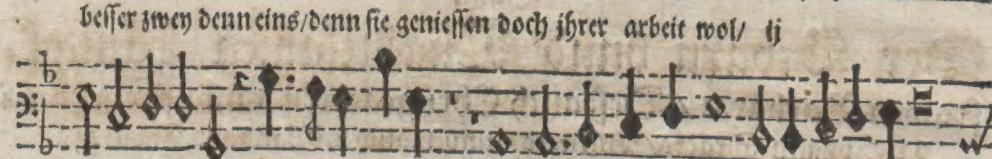 besser zwey denn eins/denn sie geniessen doch jhrer arbeit wol/ ij